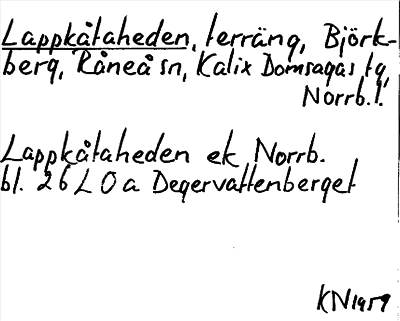 Lappkåtaheden, terräng, Björk-
berg, Råneå sn, Kalix Domsagas tg,
Norrb.l.
Lappkåtaheden ek Norrb.
bl. 26 L 0 a Degervattenberget
KN 1959